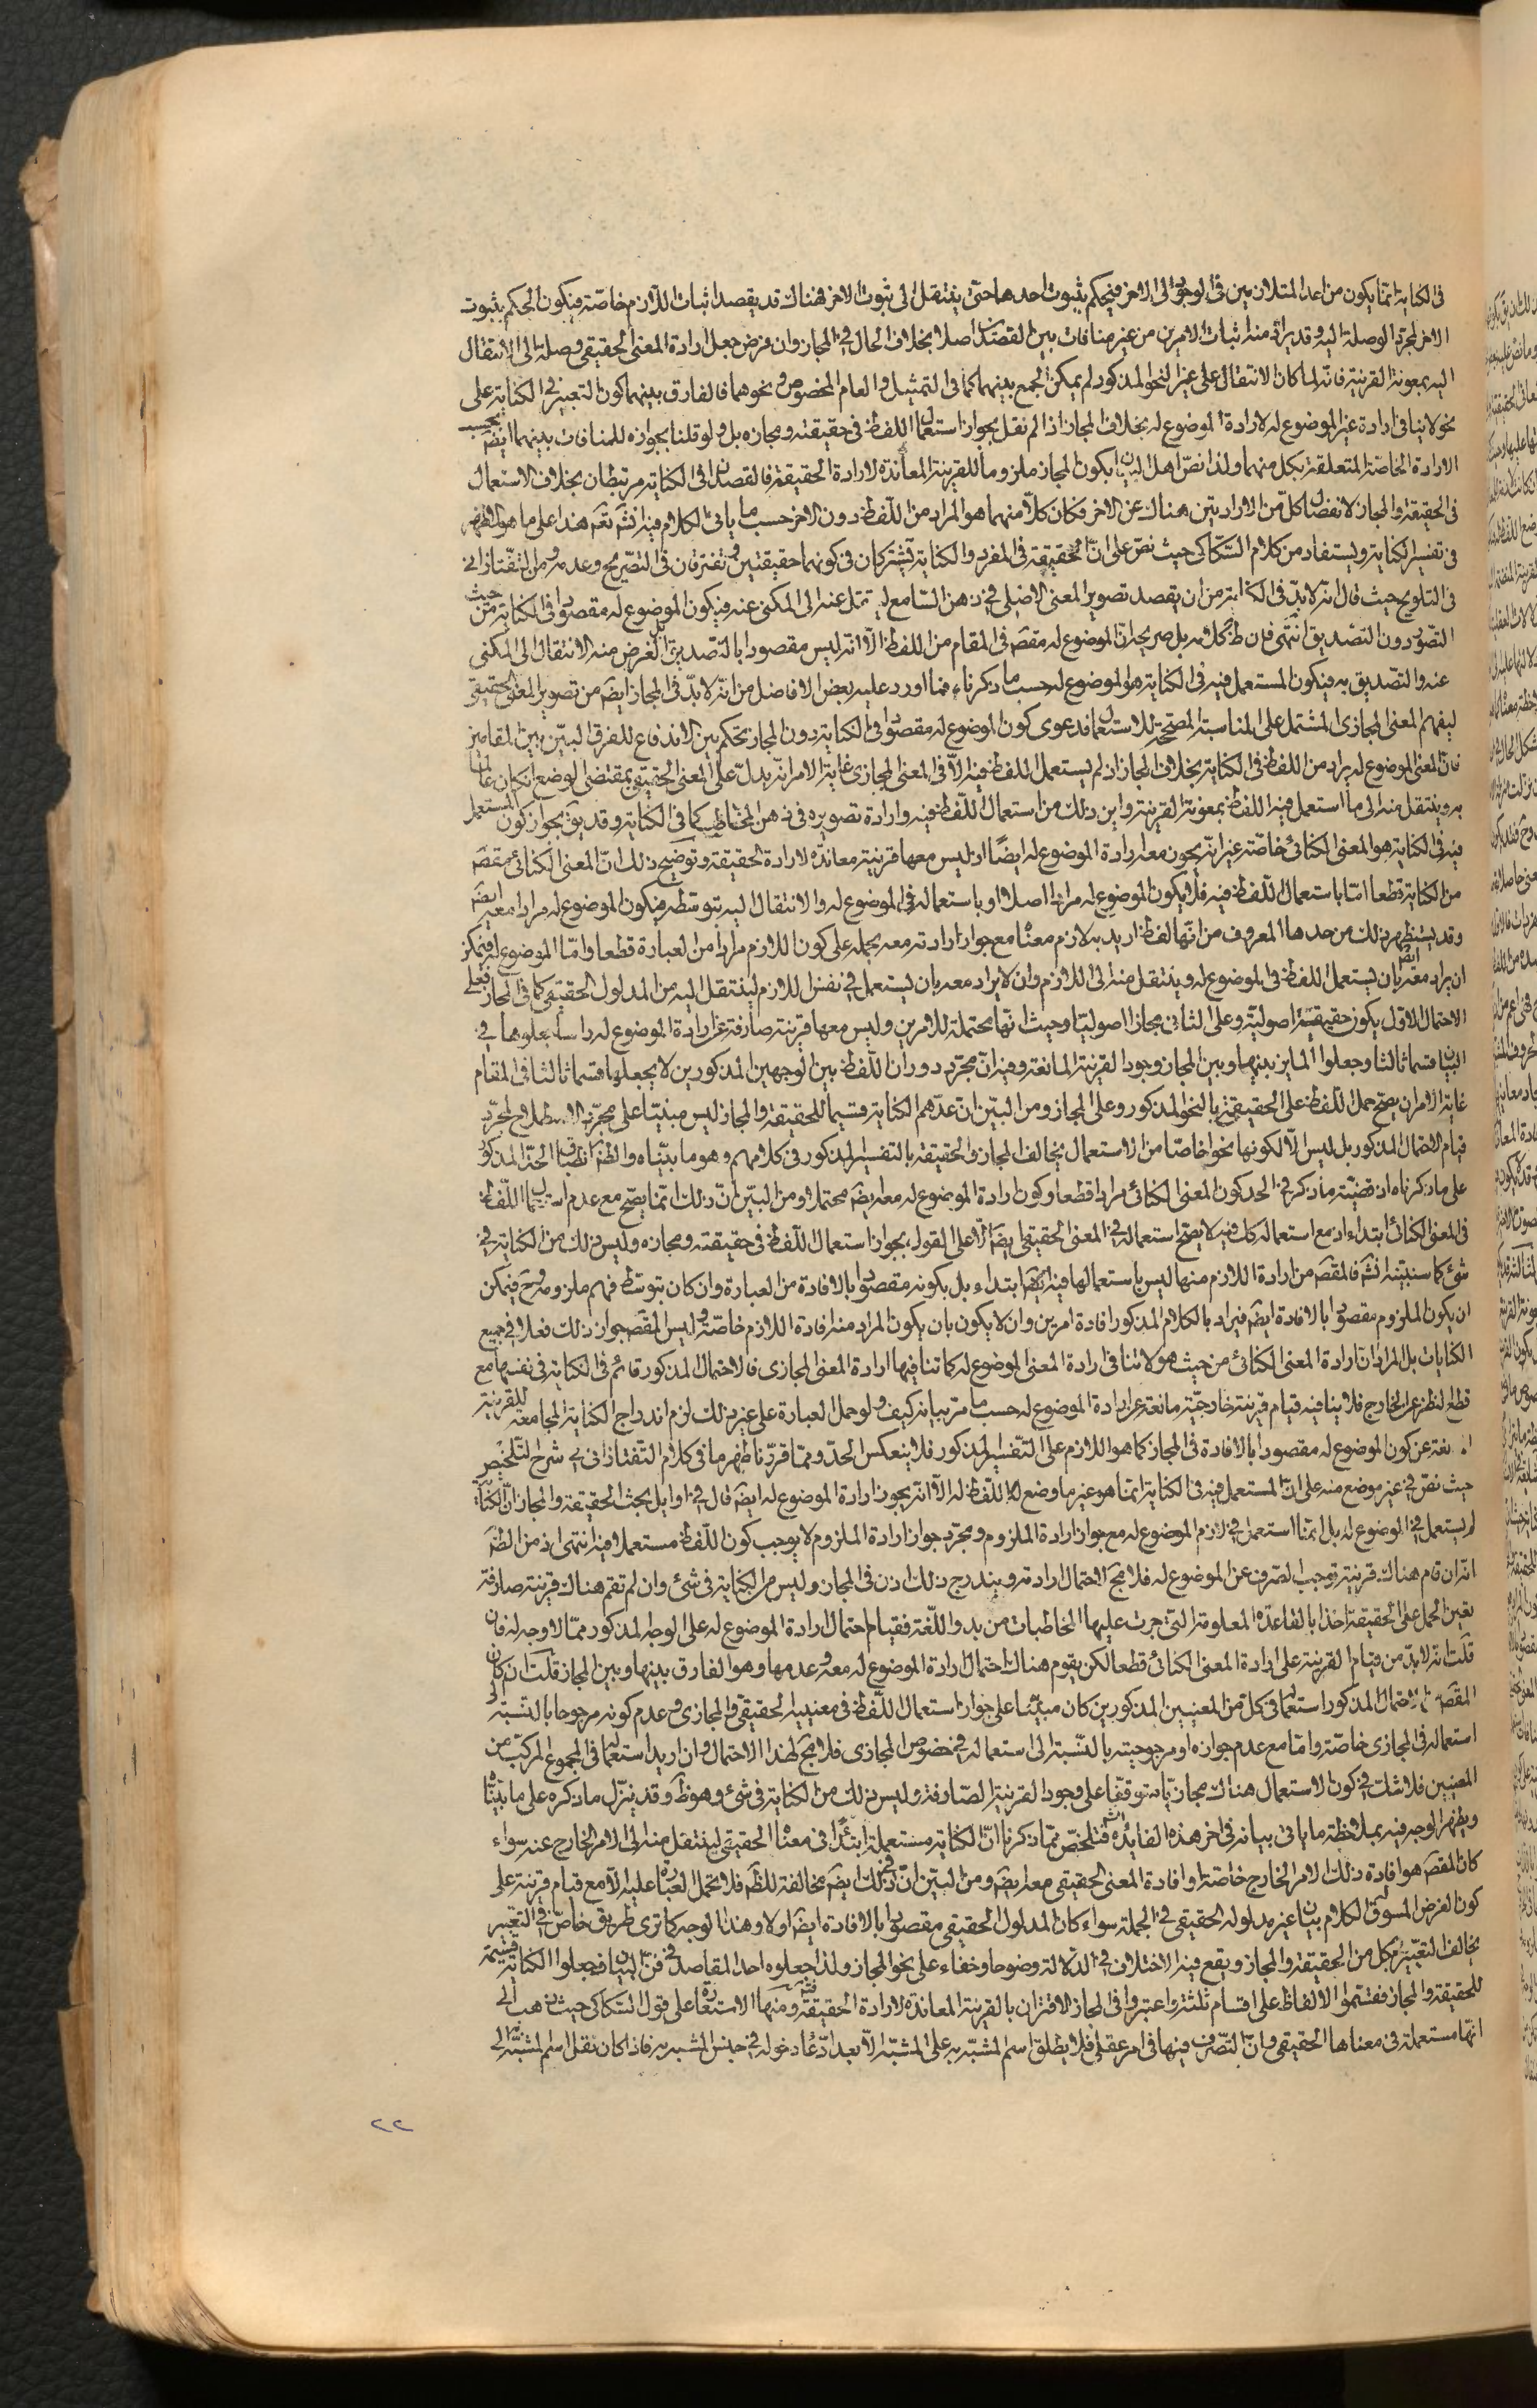 في الكناية انما يكون من احد المتلازمين في الوجود الى الاخر فيحكم بثبوت احدهما حتى ينتقل الى ثبوت الاخر فهناك قد يقصد اثبات اللازم خاصّة فيكون الحكم بثبوت
الاخر لمجرد الوصلة اليه وقد يراد منه اثبات الامرين من غير منافات بين القصدين اصلا بخلاف الحال في المجاز وان فرض جعل ارادة المعنى الحقيقي وصلة الى الانتقال
اليه بمعونة القرينة فانه لما كان الانتقال على غير النحو المذكور لم يمكن الجمع بينهما كما في التمثيل والعام المخصوص ونحوهما فالفارق بينهما كون التعبير في الكناية على
نحو لا ينافي ارادة غير الموضوع له لارادة الموضوع له بخلاف المجاز اذا لم نقل بجواز استعمال اللفظ في حقيقته ومجازه بل ولو قلنا بجوازه للمنافات بينهما ايضَ بحسب
الارادة الخاصة المتعلقة بكل منهما ولذا نصّ اهل البيان بكون المجاز ملزوما للقرينة المعاندة لارادة الحقيقة فالقصدان في الكناية مرتبطان بخلاف الاستعمال
في الحقيقة والمجاز لانفصال كلّ من الارادتين هناك عن الاخر فكان كلّا منهما هو المراد من اللّفظ دون الاخر حسب ما ياتي الكلام فيه انشَ تعَم هذا على ما هو الظهر
في تفسير الكناية ويستفاد من كلام السّكاكي حيث نصّ على انّ الحقيقة في المفرد والكناية تشتركان في كونهما حقيقتين وتفترقان في التصريح وعدمه ومن التفتازاني
في التلويح حيث قال انه لا بدّ في الكناية من ان يقصد تصوير المعنى الاصلي في ذهن السّامع لينتقل عنه الى المكنى عنه فيكون الموضوع له مقصودا في الكناية من حيث
التصوّر دون التصديق انتهى فان ظ كلامه بل صريحه انّ الموضوع له مقصَ في المقام من اللفظ الّا انّه ليس مقصودا بالتصديق بل الغرض منه الانتقال الى المكنى
عنه والتصديق به فيكون المستعمل فيه في الكناية هو الموضوع له حسب ما ذكرناه فما اورد عليه بعض الافاضل من انّه لا بدّ في المجاز ايضَ من تصوير المعنى الحقيقي
ليفهم المعنى المجازي المشتمل على المناسبة المصحّحة للاستعمال فدعوى كون الموضوع له مقصودا في الكناية دون المجاز تحكّم بيّن الاندفاع للفرق البيّن بين المقامين
فان المعنى الموضوع له يراد من اللفظ في الكناية بخلاف المجاز اذ لم يستعمل اللفظ فيه الّا في المعنى المجازي غاية الامر انّه يدلّ على المعنى الحقيقي بمقتضى الوضع ان كان عالما
به وينتقل منه الى ما استعمل فيه اللفظ بمعونة القرينة واين ذلك من استعمال اللّفظ فيه وارادة تصويره في ذهن المخاطب كما في الكناية وقد يقَ بجواز كون المستعمل
فيه في الكناية هو المعنى الكنائي خاصّة غير انّه يجوز معه ارادة الموضوع له ايضًا اذ ليس معها قرينة معاندة لارادة الحقيقة وتوضيح ذلك انّ المعنى الكنائي مقصَ
من الكناية قطعا امّا باستعمال اللّفظ فيه فلا يكون الموضوع له مرادا اصلا او باستعماله في الموضوع له والانتقال اليه بتوسّطه فيكون الموضوع له مرادا معه ايضَ
وقد يستظهر ذلك من حدها المعروف من انّها لفظ اريد به لازم معناه مع جواز ارادته معه بحمله على كون اللازم مرادا من العبارة قطعا وامّا الموضوع له فيمكن
ان يراد معه ايضَ بان يستعمل اللفظ في الموضوع له وينتقل منه الى اللازم وان لا يراد معه بان يستعمل في نفس اللازم لينتقل اليه من المدلول الحقيقي كما في المجاز فعلى
الاحتمال الاوّل يكون حقيقة اصوليّة وعلى الثاني مجازا اصوليّا وحيث انها محتملة للامرين وليس معها قرينة صارفة عن ارادة الموضوع له راسا جعلوها في
البيان قسما ثالثا وجعلوا المايز بينهما وبين المجاز وجود القرينة المانعة وفيه انّ مجرّد دوران اللّفظ بين الوجهين المذكورين لا يجعلها قسما ثالثا في المقام
غاية الامر ان يصحّ حمل اللّفظ على الحقيقة بالنحو المذكور وعلى المجاز ومن البيّن انّ عدّهم الكناية قسيما للحقيقة والمجاز ليس مبنيّا على مجرّد الاصطلاح لمجرّد
قيام الاحتمال المذكور بل ليس الّا لكونها نحوا خاصّا من الاستعمال يخالف المجاز والحقيقة بالتفسير المذكور في كلامهم وهو ما بيّناه والظَ انطباق الحدّ المذكور
على ما ذكرناه اذ قضيّة ما ذكر في الحد كون المعنى الكنائي مرادا قطعا وكون ارادة الموضوع له معه ايضَ محتملا ومن البيّن انّ ذلك انّما يصحّ مع عدم استعمال اللّفظ
في المعنى الكنائي ابتداء اذ مع استعماله كك فيه لا يصحّ استعماله في المعنى الحقيقي ايضَ الّا على القول بجواز استعمال اللّفظ في حقيقته ومجازه وليس ذلك من الكناية في
شئ كما سنبيّنه انشَ فالمقصَ من ارادة اللازم منها ليس باستعمالها فيه ايضَ ابتداء بل بكونه مقصودا بالافادة من العبارة وان كان بتوسّط فهم ملزومه وحَ فيمكن
ان يكون الملزوم مقصودا بالافادة ايضَ فيراد بالكلام المذكور افادة امرين وان لا يكون بان يكون المراد منه افادة اللازم خاصّة وليس المقصَ جواز ذلك فعلا في جميع
الكنايات بل المراد انّ ارادة المعنى الكنائي من حيث هو لا تنافي ارادة المعنى الموضوع له كما تنافيها ارادة المعنى المجازي فالاحتمال المذكور قائم في الكناية في نفسها مع
قطع النظر عن الخارج فلا ينافيه قيام قرينة خارجيّة مانعة عن ارادة الموضوع له حسب ما مرّ بيانه كيف ولو حمل العبارة على غير ذلك لزم اندراج الكناية المجامعة للقرينة
المانعة عن كون الموضوع له مقصودا بالافادة في المجاز كما هو اللازم على التّفسير المذكور فلا ينعكس الحدّ وممّا قرّرنا ظهر ما في كلام التّفتازاني في شرح التّلخيص
حيث نصّ في غير موضع منه على انّ المستعمل فيه في الكناية انّما هو غير ما وضع اللّفظ له الّا انّه يجوز ارادة الموضوع له ايضَ قال في اوايل بحث الحقيقة والمجاز انّ الكناية
لم يستعمل في الموضوع له بل انّما استعمل في لازم الموضوع له مع جواز ارادة الملزوم ومجرّد جواز ارادة الملزوم لا يوجب كون اللّفظ مستعملا فيه انتهى اذ من الظَ
انّه ان قام هناك قرينة توجب الصّرف عن الموضوع له فلا مجَ لاحتمال ارادته ويندرج ذلك اذن في المجاز وليس من الكناية في شئ وان لم تقم هناك قرينة صارفة
تعيّن الحمل على الحقيقة اخذا بالقاعدة المعلومة التي جرت عليها المخاطبات من بدو اللّغة فقيام احتمال ارادة الموضوع له على الوجه المذكور ممّا لا وجه له فان
قلت انّه لا بدّ من قيام القرينة على ارادة المعنى الكنائي قطعا لكن يقوم هناك احتمال ارادة الموضوع له معه وعدمها وهو الفارق بينها وبين المجاز قلت ان كان
المقصَ بالاحتمال المذكور استعماله في كلّ من المعنيين المذكورين كان مبنيّا على جواز استعمال اللّفظ في معنييه الحقيقي والمجازي وعدم كونه مرجوحا بالنسبة الى
استعماله في المجازي خاصّة وامّا مع عدم جوازه او مرجوحيته بالنّسبة الى استعماله في خصوص المجازي فلا مجَ لهذا الاحتمال وان اريد استعماله في المجموع المركّب من
المعنيين فلا شك في كون الاستعمال هناك مجازيّا متوقّفا على وجود القرينة الصّارفة وليس ذلك من الكناية في شئ وهو ظَ وقد ينزّل ما ذكره على ما بيّناه
ويظهر الوجه فيه بملاحظة ما ياتي بيانه في اخر هذه الفايدة انشَ فتلخّص ممّا ذكرنا انّ الكناية مستعملة ابتداء في معناه الحقيقي لينتقل منه الى الامر الخارج عنه سواء
كان المقصَ هو افادة ذلك الامر الخارج خاصّة او افادة المعنى الحقيقي معه ايضَ ومن البيّن انّ في ذلك ايضَ مخالفة للظَ فلا يحمل العبارة عليه الّا مع قيام قرينة على
كون الغرض المسوق له الكلام بيان غير مدلوله الحقيقي في الجملة سواء كان المدلول الحقيقي مقصودا بالافادة ايضَ اولا وهذا الوجه كما ترى طريق خاصّ في التعبير
يخالف التعبير بكل من الحقيقة والمجاز ويقع فيه الاختلاف في الدّلالة وضوحا وخفاء على نحو المجاز ولذا جعلوه احد المقاصد في فنّ البيان فجعلوا الكناية قسيمة
للحقيقة والمجاز فقسّموا الالفاظ على اقسام ثلثة واعتبروا في المجاز الاقتران بالقرينة المعاندة لارادة الحقيقة ومنها الاستعارة على قول السّكاكي حيث ذهب الى
انها مستعملة في معناها الحقيقي وانّ التّصرف فيها في امر عقلي فلا يطلق اسم المشبّه به على المشبّه الّا بعد ادّعاء دخوله في جنس المشبه به فاذا كان نقل اسم المشبّه الى
٢٢